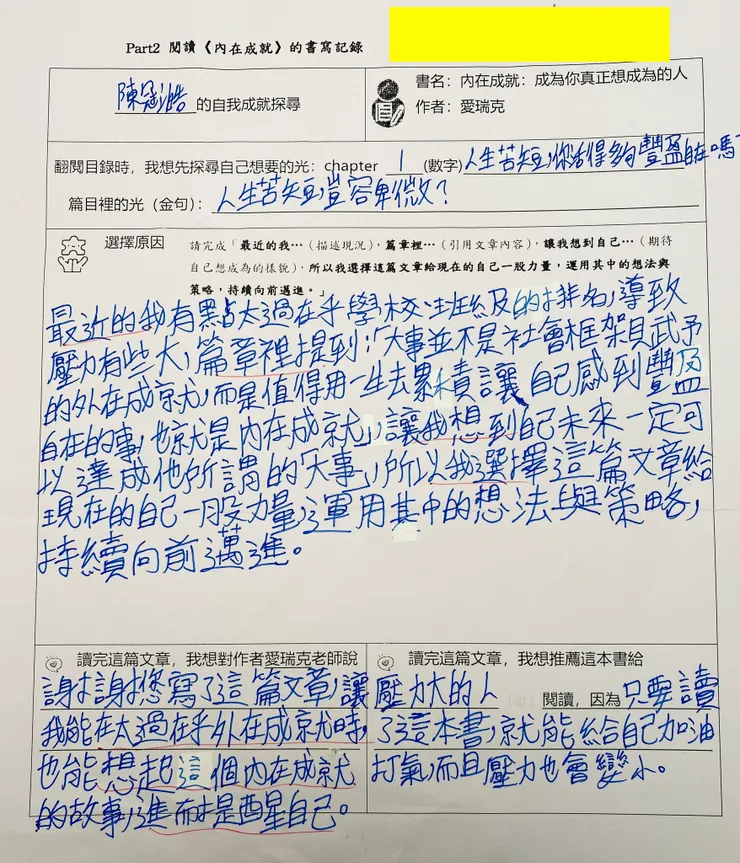 Part2 閱讀《內在成就》的書寫記錄
陳冠澔的自我成就探尋
書名：內在成就：成為你真正想成為的人
作者：愛瑞克
翻閱目錄時，我想先探尋自己想要的光：chapter 1 (數字)人生苦短，你活得夠豐盈自在嗎？
篇目裡的光（金句）：人生苦短，豈容卑微？
選擇原因
請完成「最近的我…（描述現況），篇章裡…（引用文章內容），讓我想到自己…（期待
自己想成為的樣貌），所以我選擇這篇文章給現在的自己一股力量，運用其中的想法與
策略，持續向前邁進。」
最近的我有點太過在乎學校、班級的排名，導致
壓力有些大，篇章裡提到：「大事並不是社會框架與賦予
的外在成就，而是值得用一生去累積讓自己感到豐盈及
自在的事，也就是內在成就」，讓我想到自己未來一定可
以達成他所謂的「大事」，所以我選擇這篇文章給
現在的自己一股力量，運用其中的想法與策略，
持續向前邁進。
讀完這篇文章，我想對作者愛瑞克老師說
謝謝您寫了這篇文章，讓
我能在太過在乎外在成就時，
也能想起這個內在成就
的故事，進而提醒自己。
讀完這篇文章，我想推薦這本書給
壓力大的人 閱讀，因為只要讀
了這本書，就能給自己加油
打氣，而且壓力也會變小。